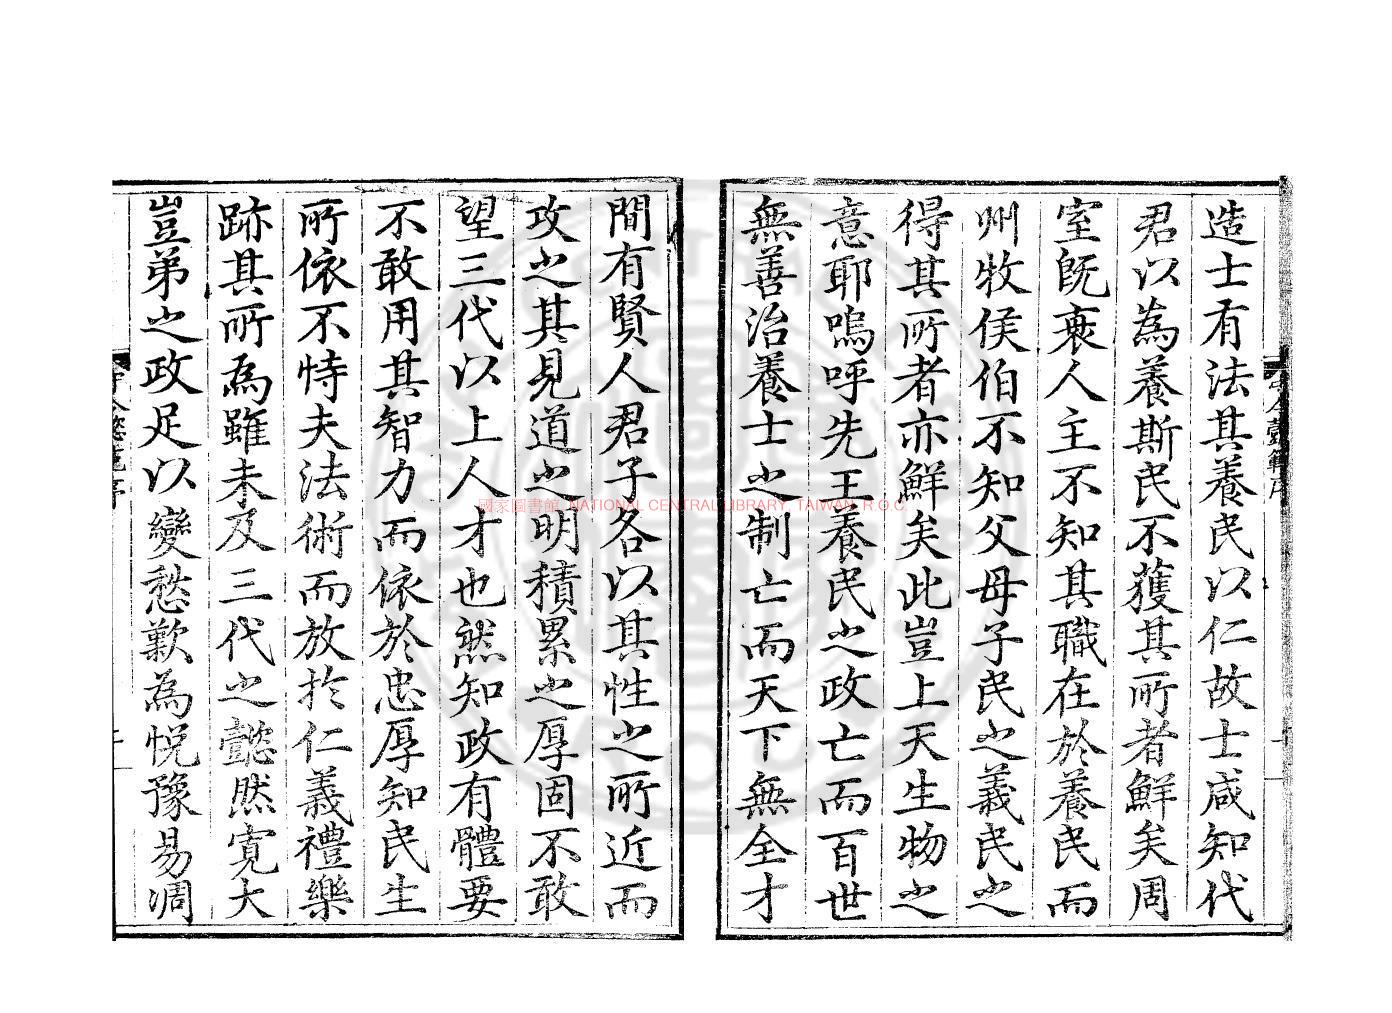 造士有法其養民以仁故士咸知代
君以為養斯民不獲其所者鮮矣周
室旣衷人主不知其職在於養民而
州牧侯伯不知父母子民之義民之
得其所者亦鮮矣此豈上天生物之
意耶嗚呼先王養民之政亡而百世
無善治養士之制亡而天下無全才
間有賢人君子各以其性之所近而
攻之其見道之明積累之厚固不敢
望三代以上人才也然知政有體要
不敢用其智力而依於忠厚知民生
所依不恃夫法術而放於仁義禮樂
跡其所為雖未及三代之懿然寬大
豈弟之政足以變愁歎為悅豫易凋
國家圖書館 NATIONAL CENTRAL LIBRARY, TAIWAN, R.O.C.